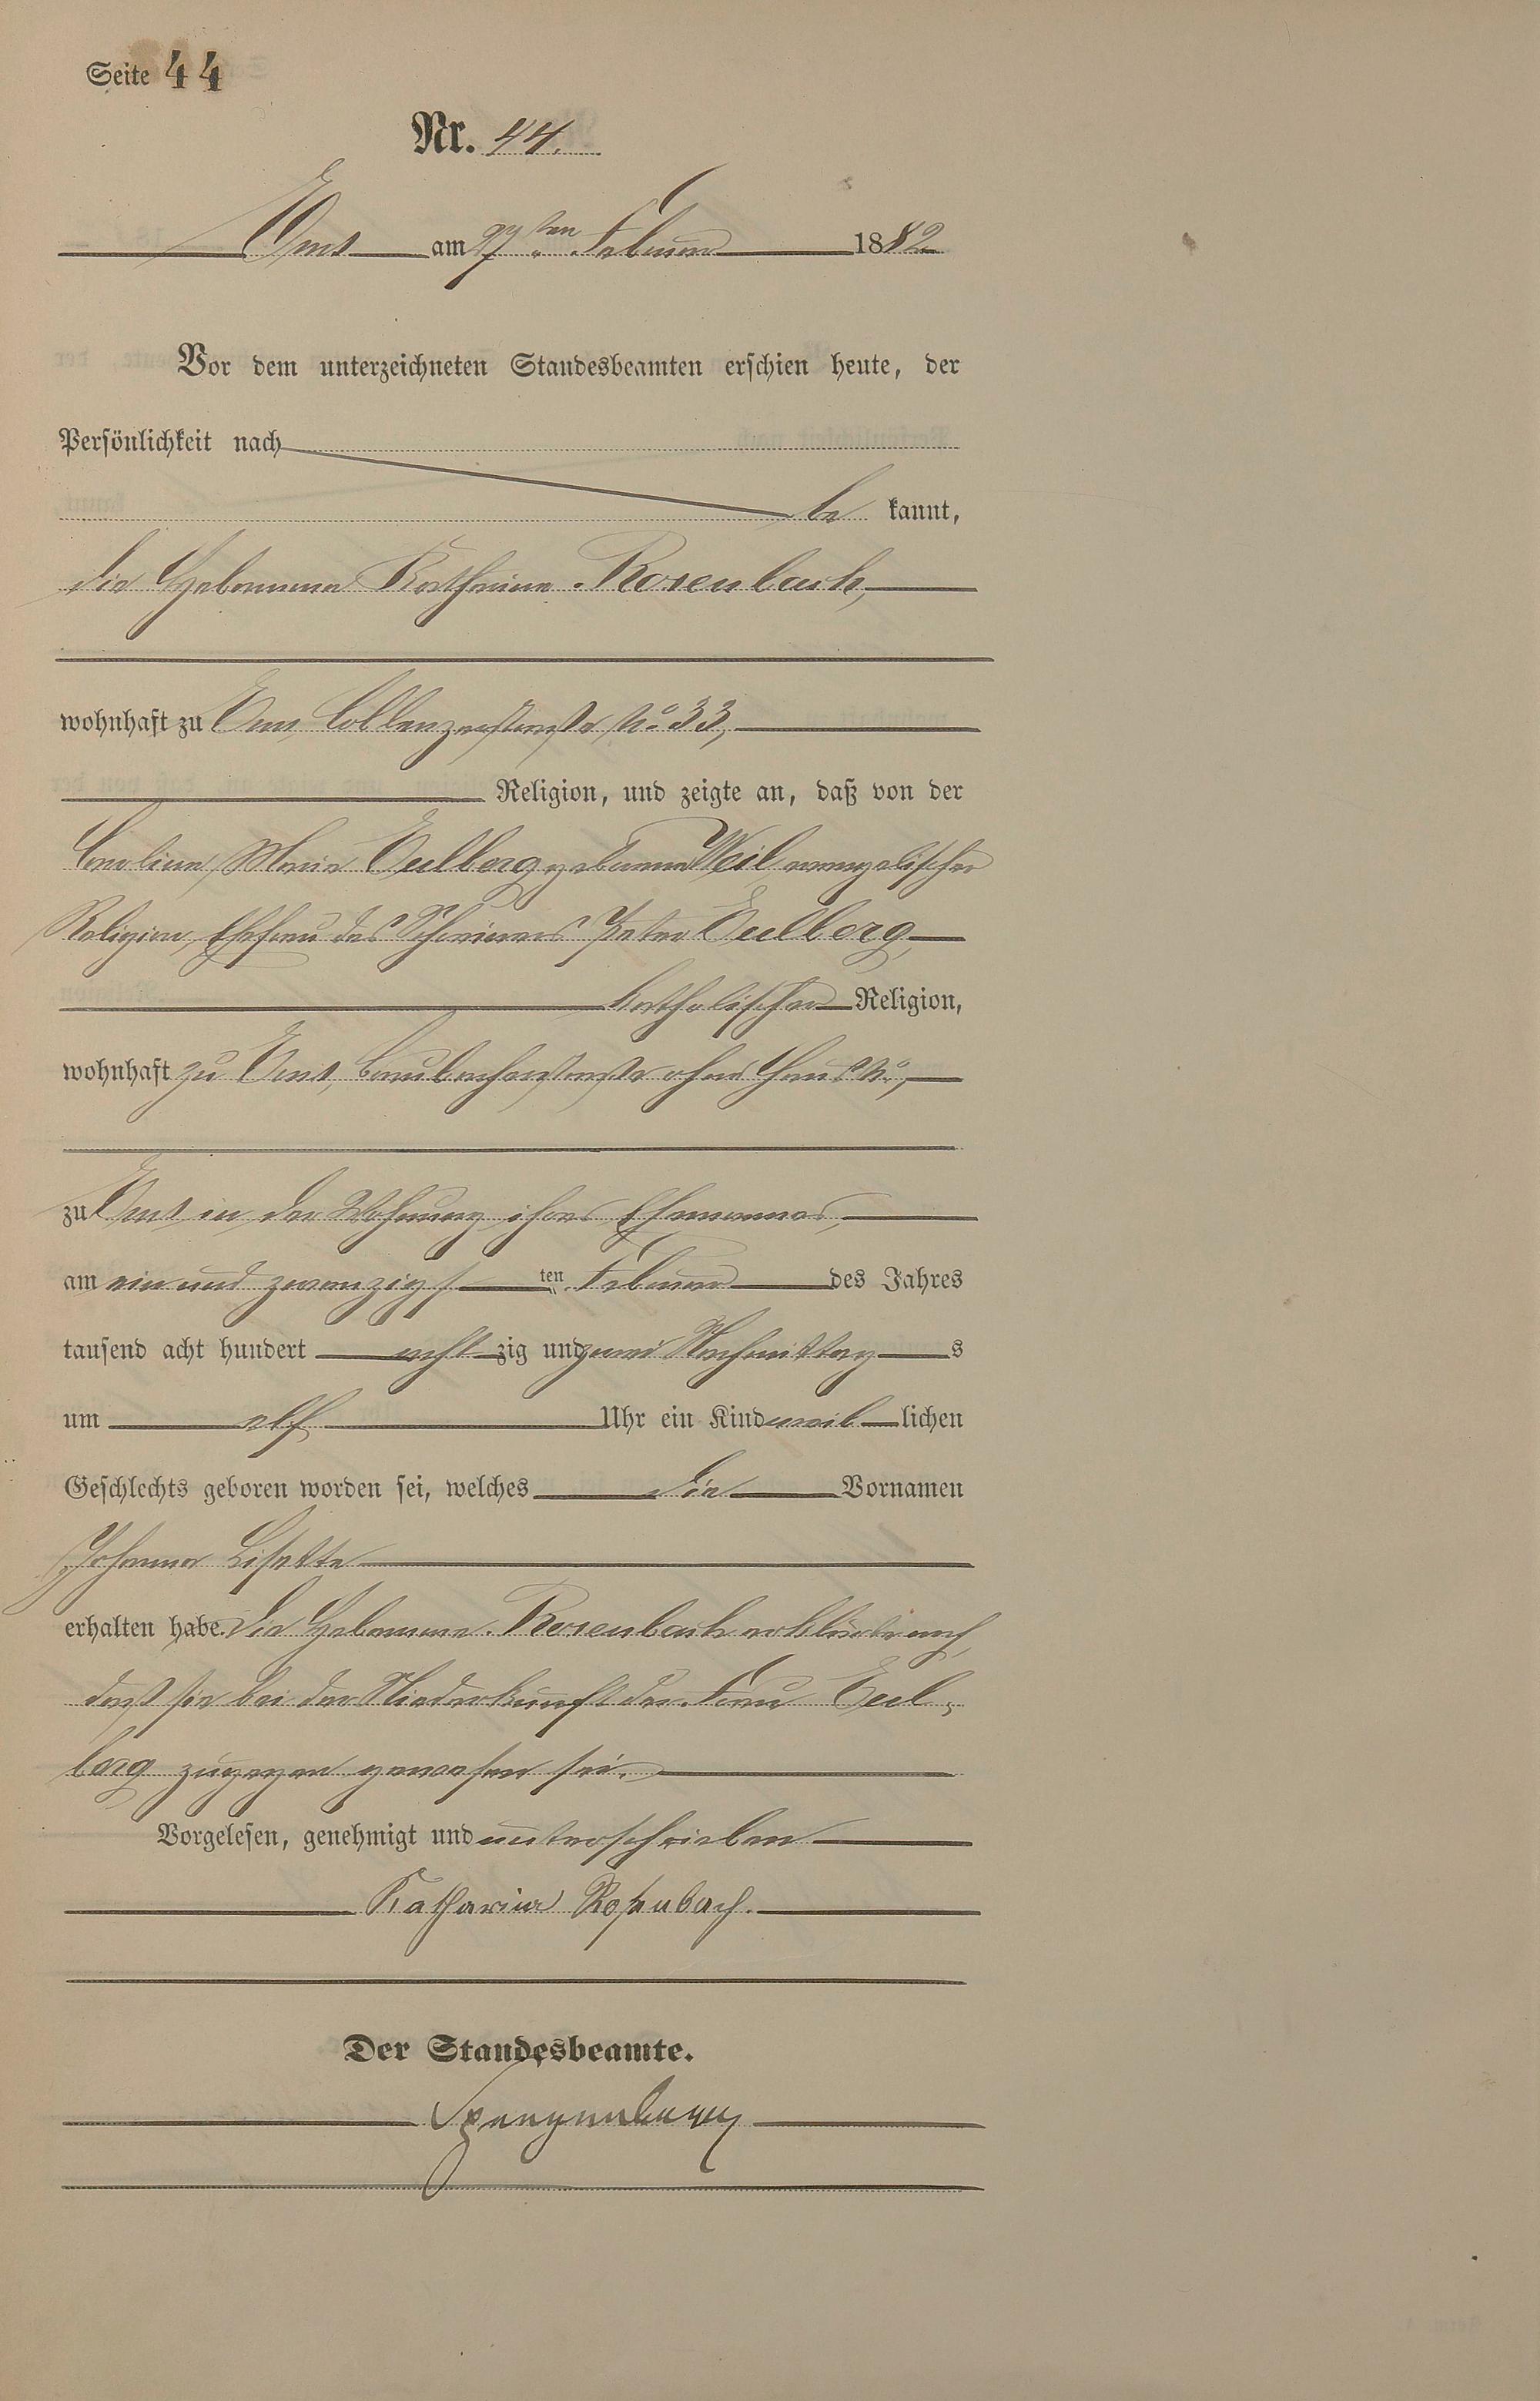 Seite 44
Nr. 44.
Ems am 27ten Februar 1882
Vor dem unterzeichneten Standesbeamten erschien heute, der
Persönlichkeit nach
be kannt,
die Hebamme Katharina Rosenbach,
wohnhaft zu Ems, Coblenzerstraße No 33,
Religion, und zeigte an, daß von der
Caroline, Marie Eulberg geborene Weil, evangelischer
Religion, Ehefrau des Schreiners Peter Eulberg,
katholischer Religion,
wohnhaft zu Ems, Braubacherstraße ohne Haus No,
zu Ems in der Wohnung ihres Ehemannes,
am ein und zwanzigsten Februar des Jahres
tausend acht hundert acht zig und zwei Nachmittags
um elf Uhr ein Kind weiblichen
Geschlechts geboren worden sei, welches die Vornamen
Johanna Lisette
erhalten habe. Die Hebamme Rosenbach erklärte noch,
daß sie bei der Niederkunft der Frau Eul-
berg zugegen gewesen sei.
Vorgelesen, genehmigt und unterschrieben
Katharina Rosenbach.
Der Standesbeamte.
Spangenberg